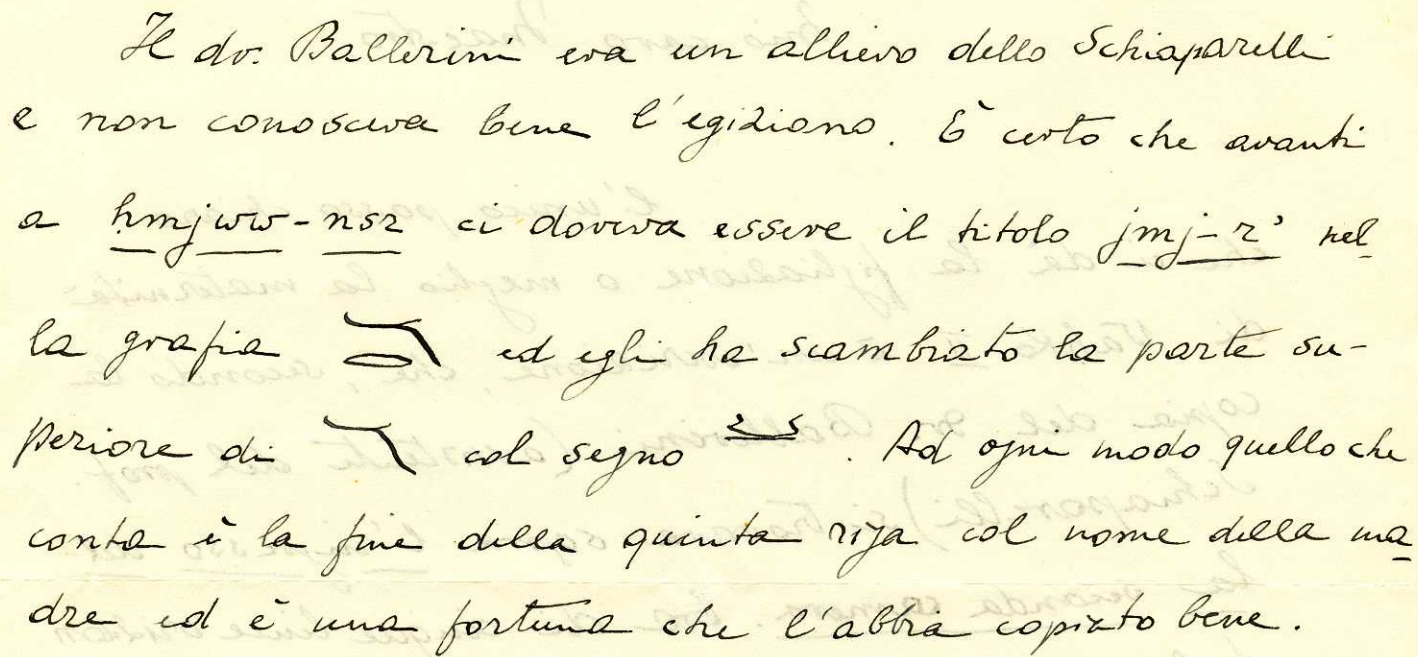 Il dr. Ballerini era un allievo dello Schiaparelli
e non conosceva bene l'egiziano. È certo che avanti
a ḥmjww-nsr ci doveva essere il titolo jmj-rʾ nel
la grafia 𓄓 ed egli ha scambiato la parte su-
periore di 𓄓 col segno . Ad ogni modo quello che
conta è la fine della quinta riga col nome della ma
dre ed è una fortuna che l'abbia copiato bene.